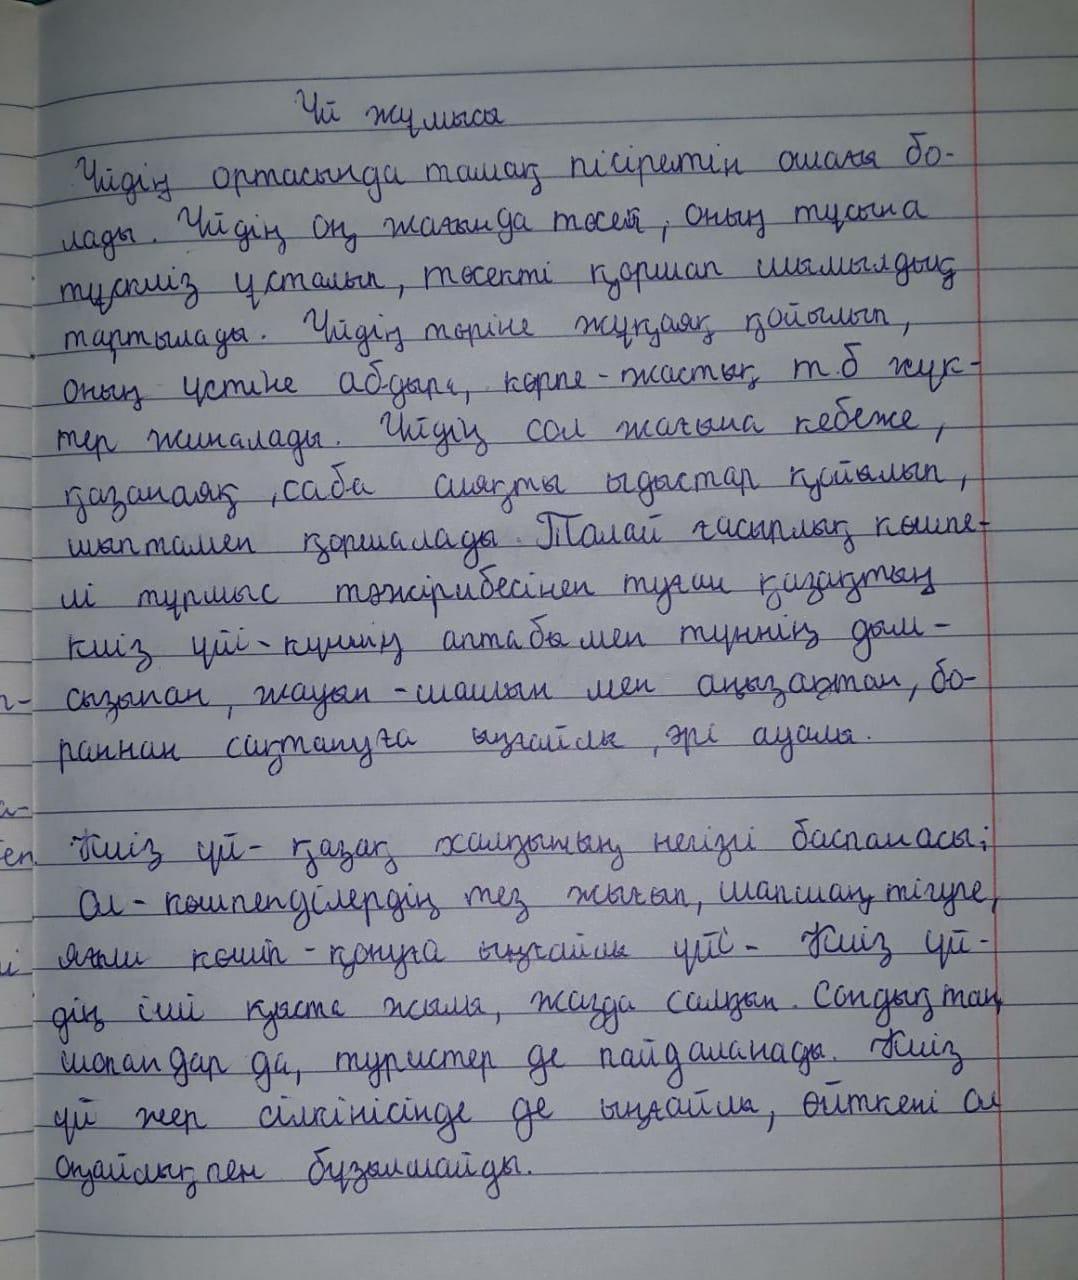 Үй жұмысы
Үйдің ортасында тамақ пісіретін ошағы бо-
лады. Үйдің оң жағында төсек, оның тұсына
тұскиіз ұсталып, төсекті қоршап шымылдық
тартылады. Үйдің төріне жүкаяқ қойылып,
оның үстіне абдыра, көрпе-жастық т.б жүк-
тер жиналады. Үйдің сол жағына кебеже,
қазанаяқ, саба сияқты ыдыстар қойылып,
шыптамен қоршалады. Талай ғасырлық көшпе-
лі тұрмыс тәжірибесінен туған қазақтың
киіз үйі-күннің аптабы мен түннің дым-
сызынан, жауын-шашын мен аңызақтан, бо-
раннан сақтануға ыңғайлы, әрі ауалы.
Киіз үй- қазақ халқының негізгі баспанасы;
Ол-көшпенділердің тез жығып, шапшаң тігуге,
яғни көшіп-қонуға ыңғайлы үйі- Киіз үй-
дің іші қыста жылы, жазда салқын. Сондықтан
шопандар да, туристер де пайдаланады. Киіз
үй жер сілкінісінде де ыңғайлы, өйткені ол
оңайлықпен бұзылмайды.